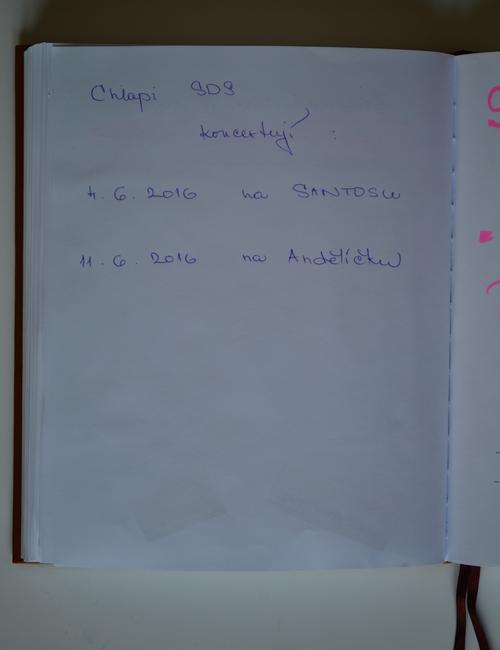 Chlapi SDS
koncertují :
4. 6. 2016 na SANTOSU
11. 6. 2016 na Andělíčku